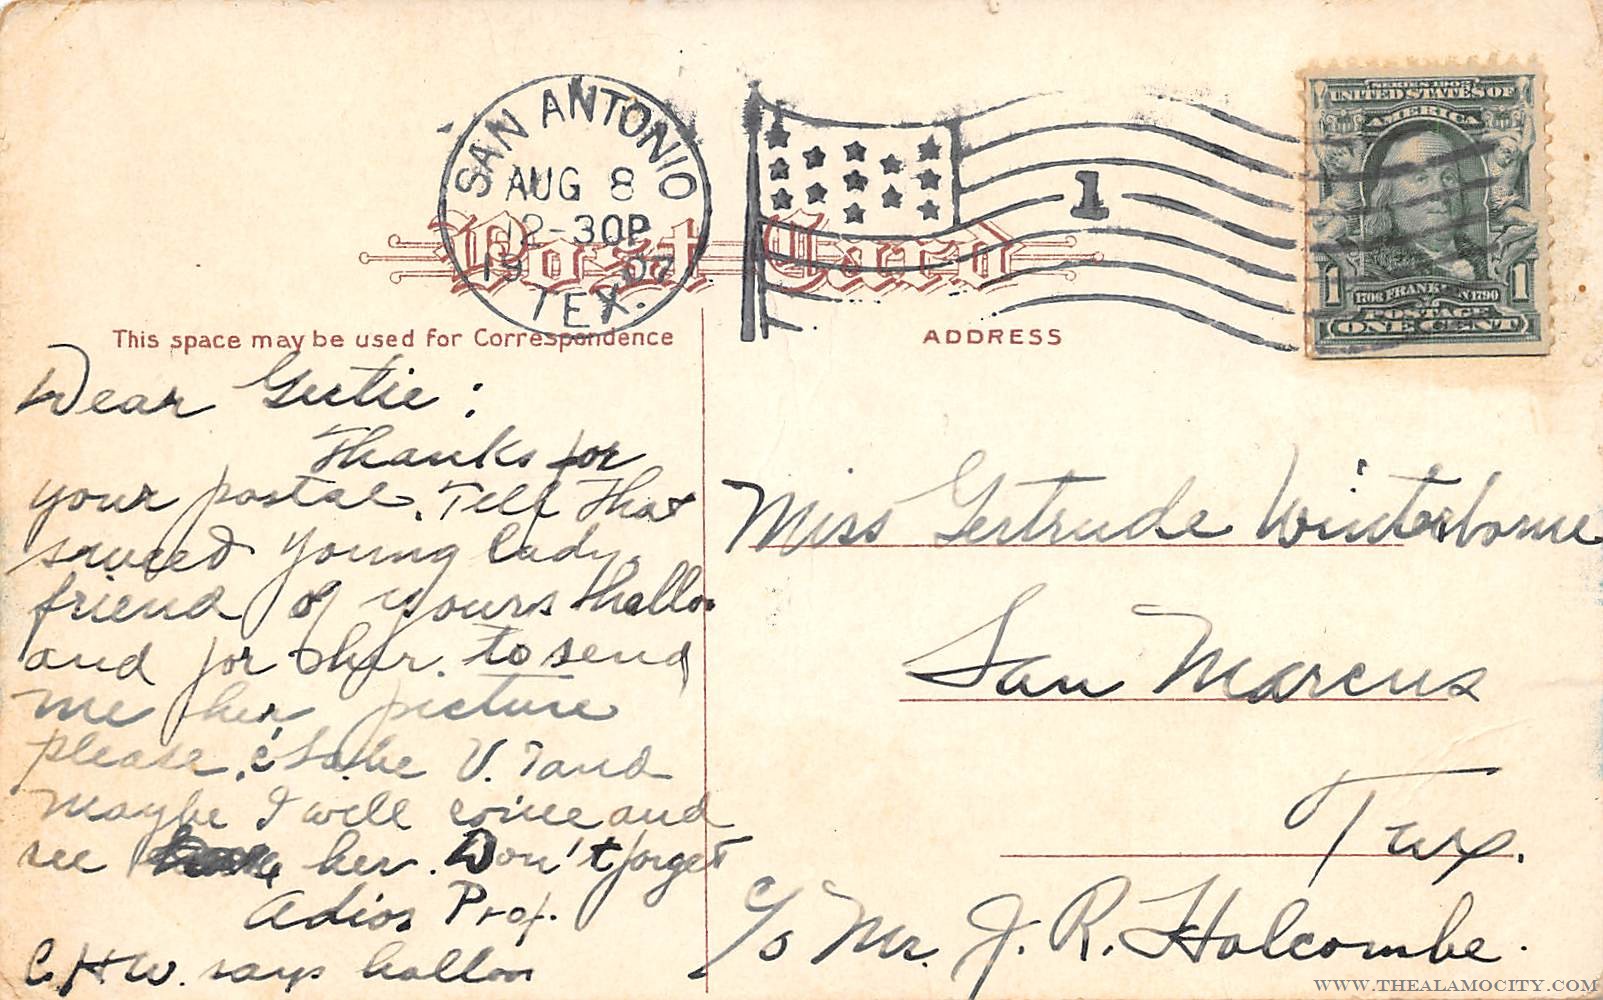 SAN ANTONIO
AUG 8
12-30P
19 07
TEX.
1
SERIES 1902
UNITED STATES OF
AMERICA
1 1
1706 FRANKLIN 1790
POSTAGE
ONE CENT
Post Card
This space may be used for Correspondence
ADDRESS
Dear Gertie:
Thanks for
your postal. Tell that
sweet young lady
friend of yours hallo
and for her to send
me her picture
please, &
maybe I will come and
see her. Don't forget
Adios Prof.
C.H.W. says halloo
Miss Gertrude Winterborne
San Marcus
Tex.
c/o Mr. J. R. Holcombe.
WWW.THEALAMOCITY.COM